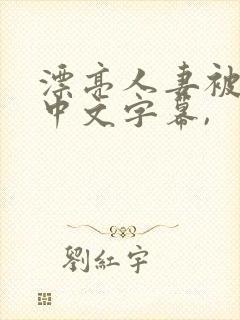 漂亮人妻被
中文字幕,
劉紅宇